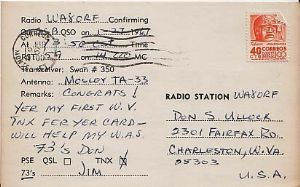 Radio WA8ORF Confirming
QSO
Time
MC
Transceiver; Swan #350
Antenna: MOSLEY TA-33
Remarks: CONGRATS!
YER MY FIRST W.V.
TNX FER YER CARD-
WILL HELP MY W.A.S.
73's DON
PSE QSL TNX X
73's JIM
40
CENTAVOS
MEXICO
RADIO STATION WA8ORF
DON S. ULLOCK
2301 FAIRFAX RD.
CHARLESTON, W. VA
25303
U.S.A.